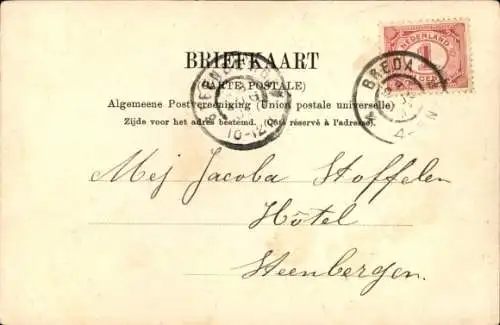 BRIEFKAART
(CARTE POSTALE)
Algemeene Postvereeniging (Union postale universelle)
Zijde voor het adres bestemd. (Côté réservé à l'adresse).
NEDERLAND
1
CENT
BREDA
4-5 N
STEENBERGEN
10-12
Mej Jacoba Stoffelen
Hôtel
Steenbergen.